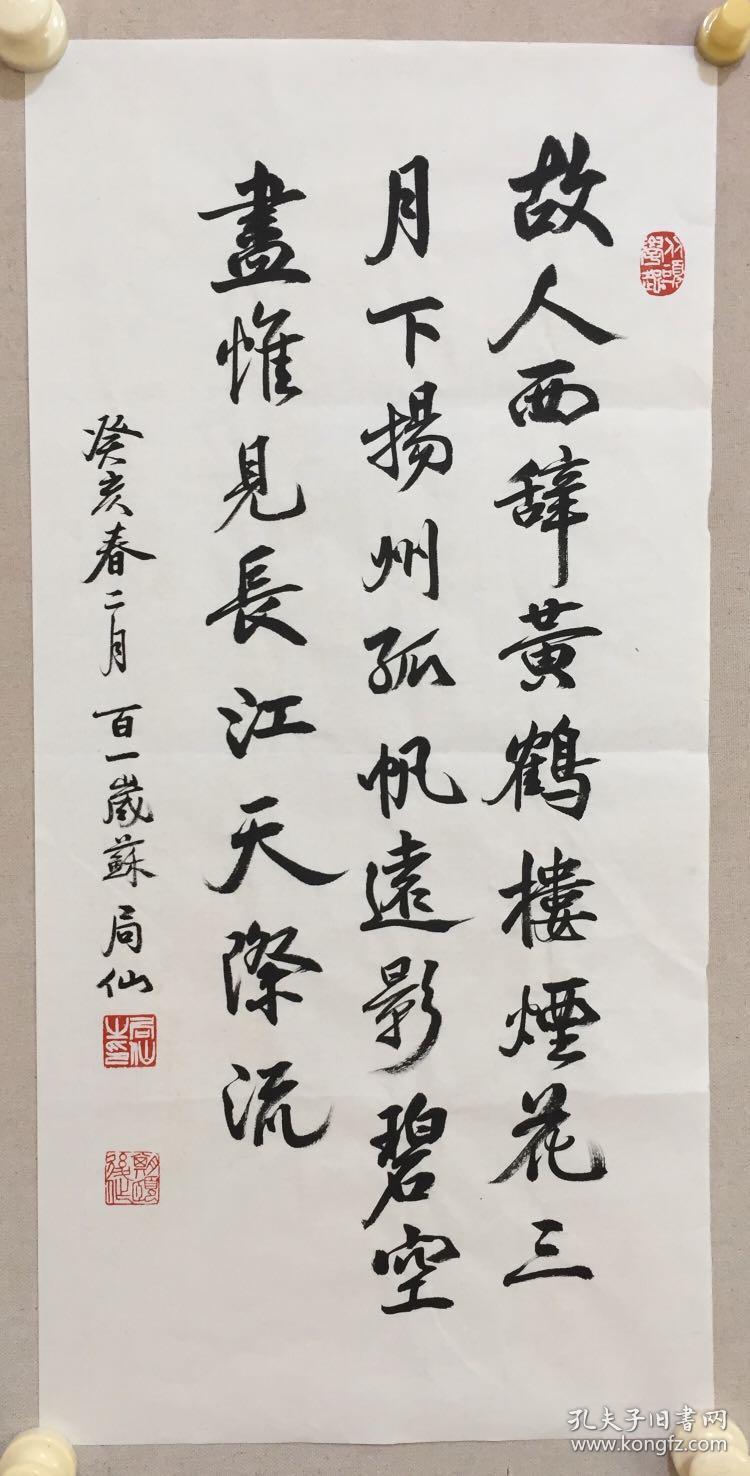 故人西辞黃鶴樓煙花三
月下揚州孤帆遠影碧空
盡惟見長江天際流
癸亥春二月 百一歲蘇局仙
孔夫子旧书网
www.kongfz.com